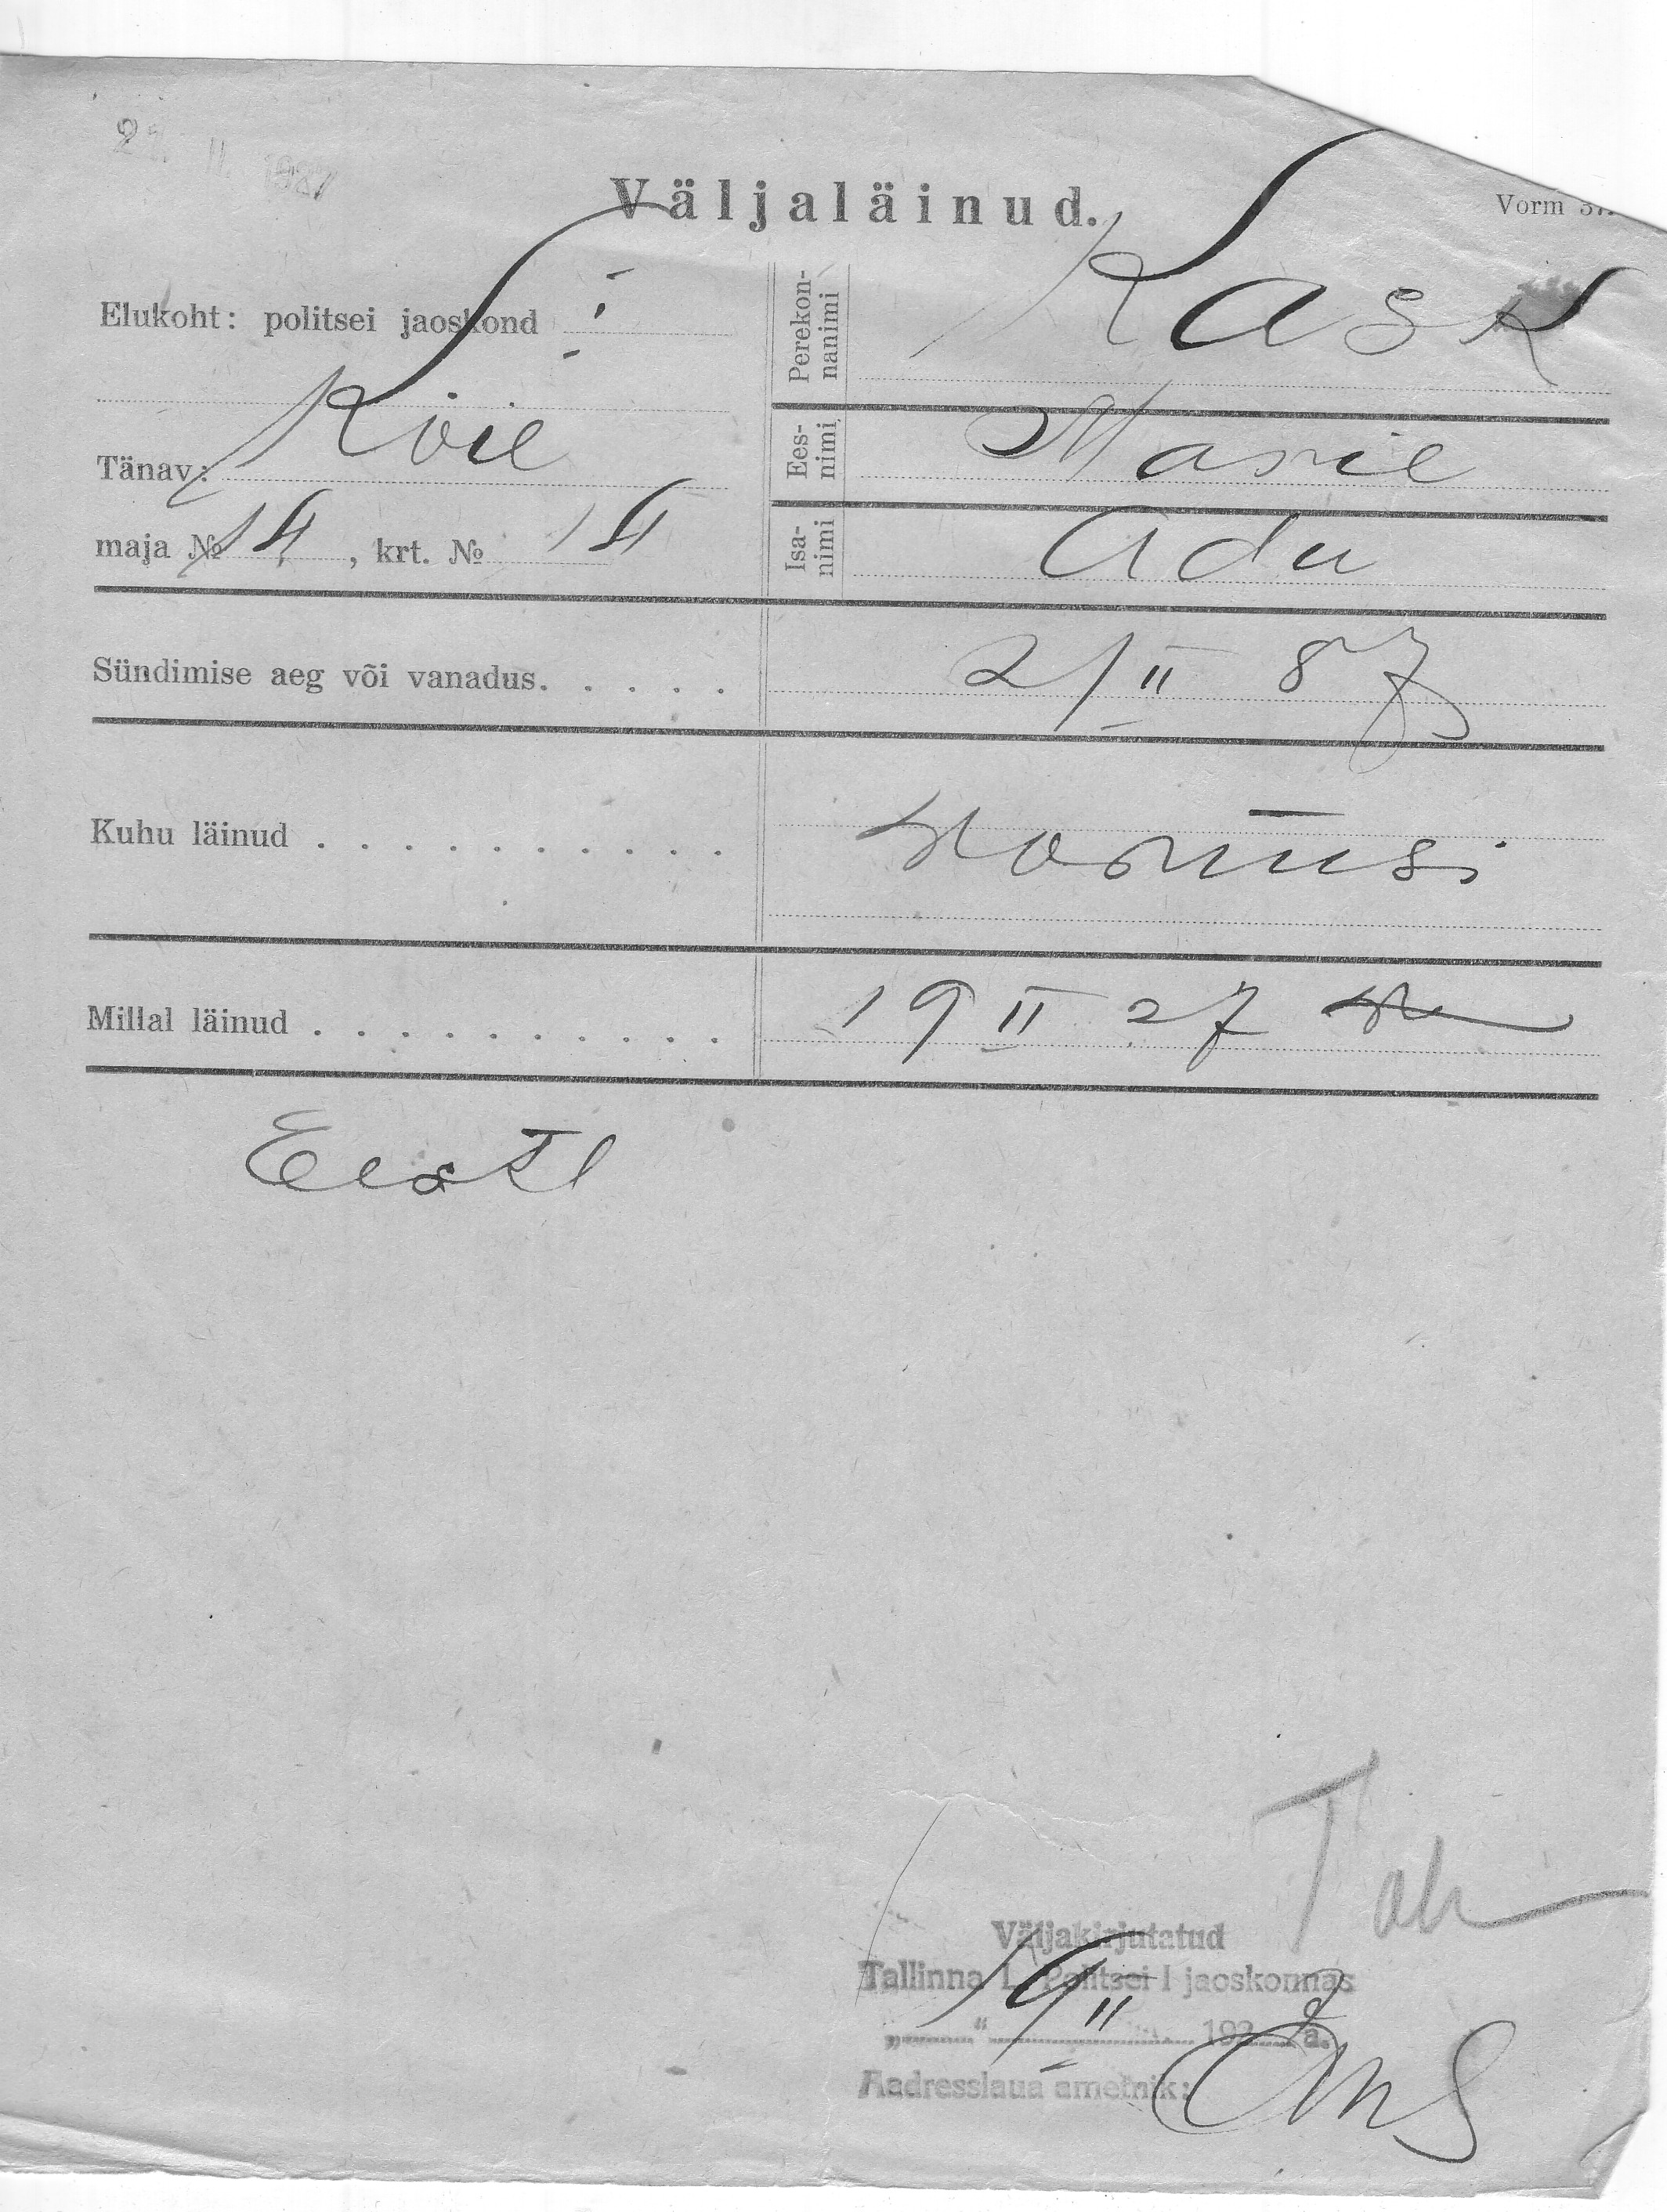 21. II. 1927
Väljaläinud.
Vorm 37.
Elukoht: politsei jaoskond I
Perekonnanimi Kask
Tänav: Köie
Eesnimi Marie
maja № 14, krt. № 14
Isanimi Adu
Sündimise aeg või vanadus. . . . . 21/II 87
Kuhu läinud . . . . . . . . . .
Millal läinud . . . . . . . . . . 19 II 27
Eesti
Väljakirjutatud
Tallinna L. Politsei I jaoskonnas
„ 19 “ II 192 7 a.
Aadresslaua ametnik: